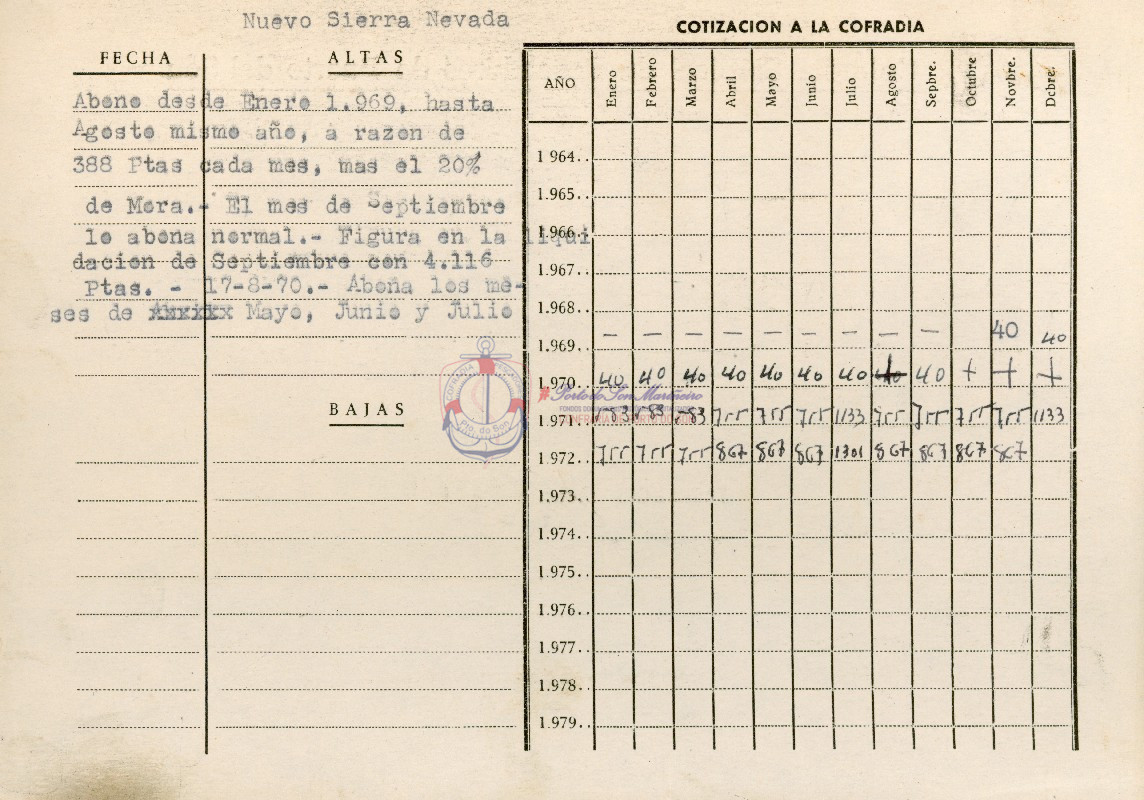 Nuevo Sierra Nevada
FECHA ALTAS
Abono desde Enero 1.969, hasta
Agosto mismo año, a razon de
388 Ptas cada mes, mas el 20%
de Mora.- El mes de Septiembre
lo abona normal.- Figura en la liqui
dacion de Septiembre con 4.116
Ptas. - 17-8-70.- Abona los me-
ses de Mayo, Junio y Julio
BAJAS
COFRADIA PESCADORES
Pto. do Son
Porto do Son Mariñeiro
COTIZACION A LA COFRADIA
AÑO Enero Febrero Marzo Abril Mayo Junio Julio Agosto Sepbre. Octubre Novbre. Dcbre.
1.964..
1.965..
1.966..
1.967..
1.968..
1.969.. — — — — — — — — — 40 40
1.970.. 40 40 40 40 40 40 40 40 40 + + +
1.971.. 83 83 83 755 755 755 1133 755 755 755 755 1133
1.972.. 755 755 755 867 867 867 1301 867 867 867 867
1.973..
1.974..
1.975..
1.976..
1.977..
1.978..
1.979..